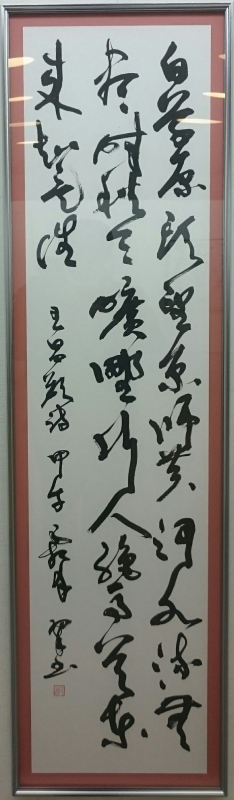 白草原頭望京師黄河水流無
盡時秋天曠野行人絶馬首東
来知是誰
王昌齡詩 甲午 書